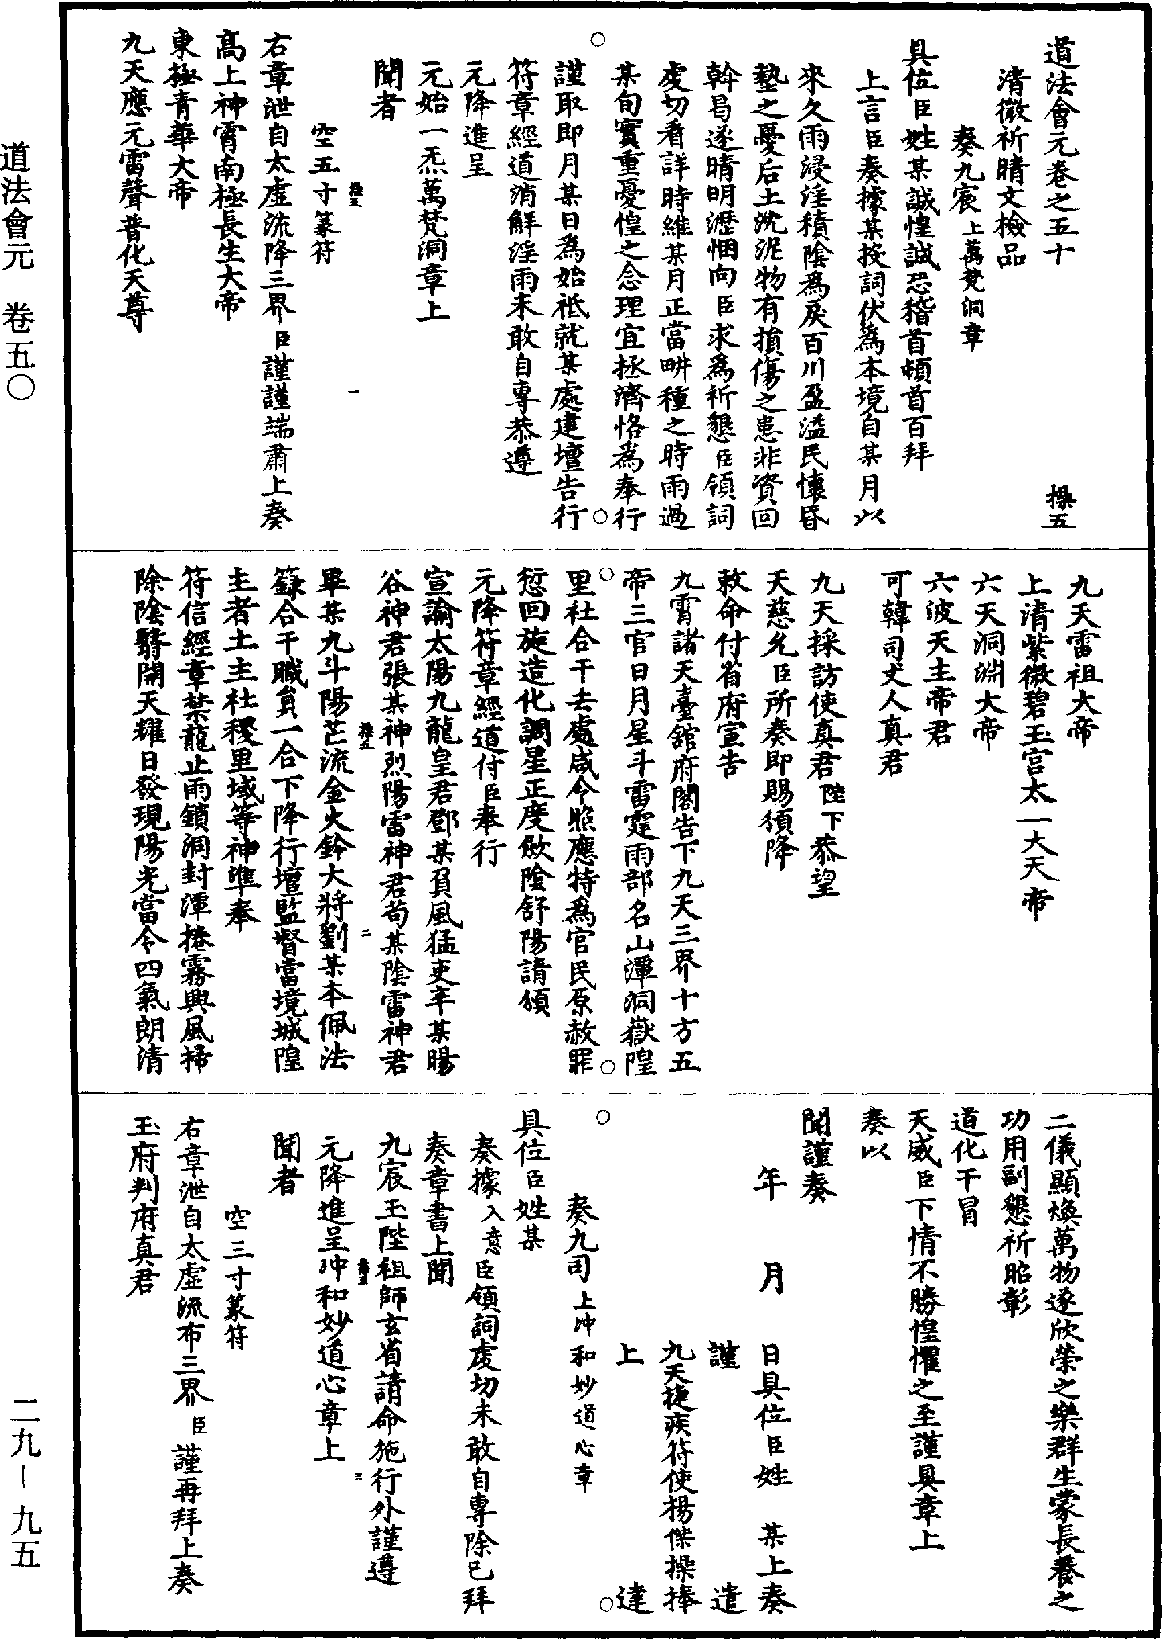 道法會元卷之五十　操五
清微祈晴文檢品
奏九宸上萬梵洞章
具位臣姓某誠惶誠恐稽首頓首百拜
上言臣奏據某投詞伏爲本境自某月以
來久雨浸淫積陰爲戾百川盈溢民懷昏
墊之憂后土沈泥物有損傷之患非資回
斡曷遂晴明瀝悃向臣求爲祈懇臣領詞
虔切看詳時維某月正當畊種之時雨過
某旬實重憂惶之念理宜拯濟恪爲奉行
謹取即月某日為始祗就某處建壇告行
符章經道消解淫雨未敢自專恭遵
元降進呈
元始一炁萬梵洞章上
聞者
空五寸篆符
右章泄自太虛流降三界臣謹謹端肅上奏
高上神霄南極長生大帝
東極青華大帝
九天應元雷聲普化天尊
九天雷祖大帝
上清紫微碧玉宫太一大天帝
六天洞淵大帝
六波天主帝君
可韓司丈人真君
九天採訪使真君陛下恭望
天慈允臣所奏即賜頒降
敕命付省府宣告
九霄諸天臺館府閣告下九天三界十方五
帝三官日月星斗雷霆雨部名山潭洞嶽隍
里社合干去處咸令照應特為官民原赦罪
愆回旋造化調星正度斂陰舒陽請頒
元降符章經道付臣奉行
宣諭太陽九龍皇君鄧某負風猛吏辛某暘
谷神君張某神烈陽雷神君苟某陰雷神君
畢某九斗陽芒流金火鈴大將劉某本佩法
籙合干職員一合下降行壇監督當境城隍
主者土主社稷里域等神準奉
符信經章禁龍止雨鎖洞封潭捲霧興風掃
除陰翳開天耀日發現陽光當令四氣朗清
二儀顯煥萬物遂欣榮之樂群生蒙長養之
功用副懇祈昭彰
道化干冒
天威臣下情不勝惶懼之至謹具章上
奏以
聞謹奏
年　月　日具位臣姓　某上奏
謹　遣
九天捷疾符使楊傑操捧
上　達
奏九司上冲和妙道心章
具位臣姓某
奏據入意臣領詞虔切未敢自專除已拜
奏章書上聞
九宸玉陛祖師玄省請命施行外謹遵
元降進呈冲和妙道心章上
聞者
空三寸篆符
右章泄自太虛流布三界臣謹再拜上奏
玉府判府真君
操五　一
操五　二
操五　三
道法會元　卷五〇
二九—九五